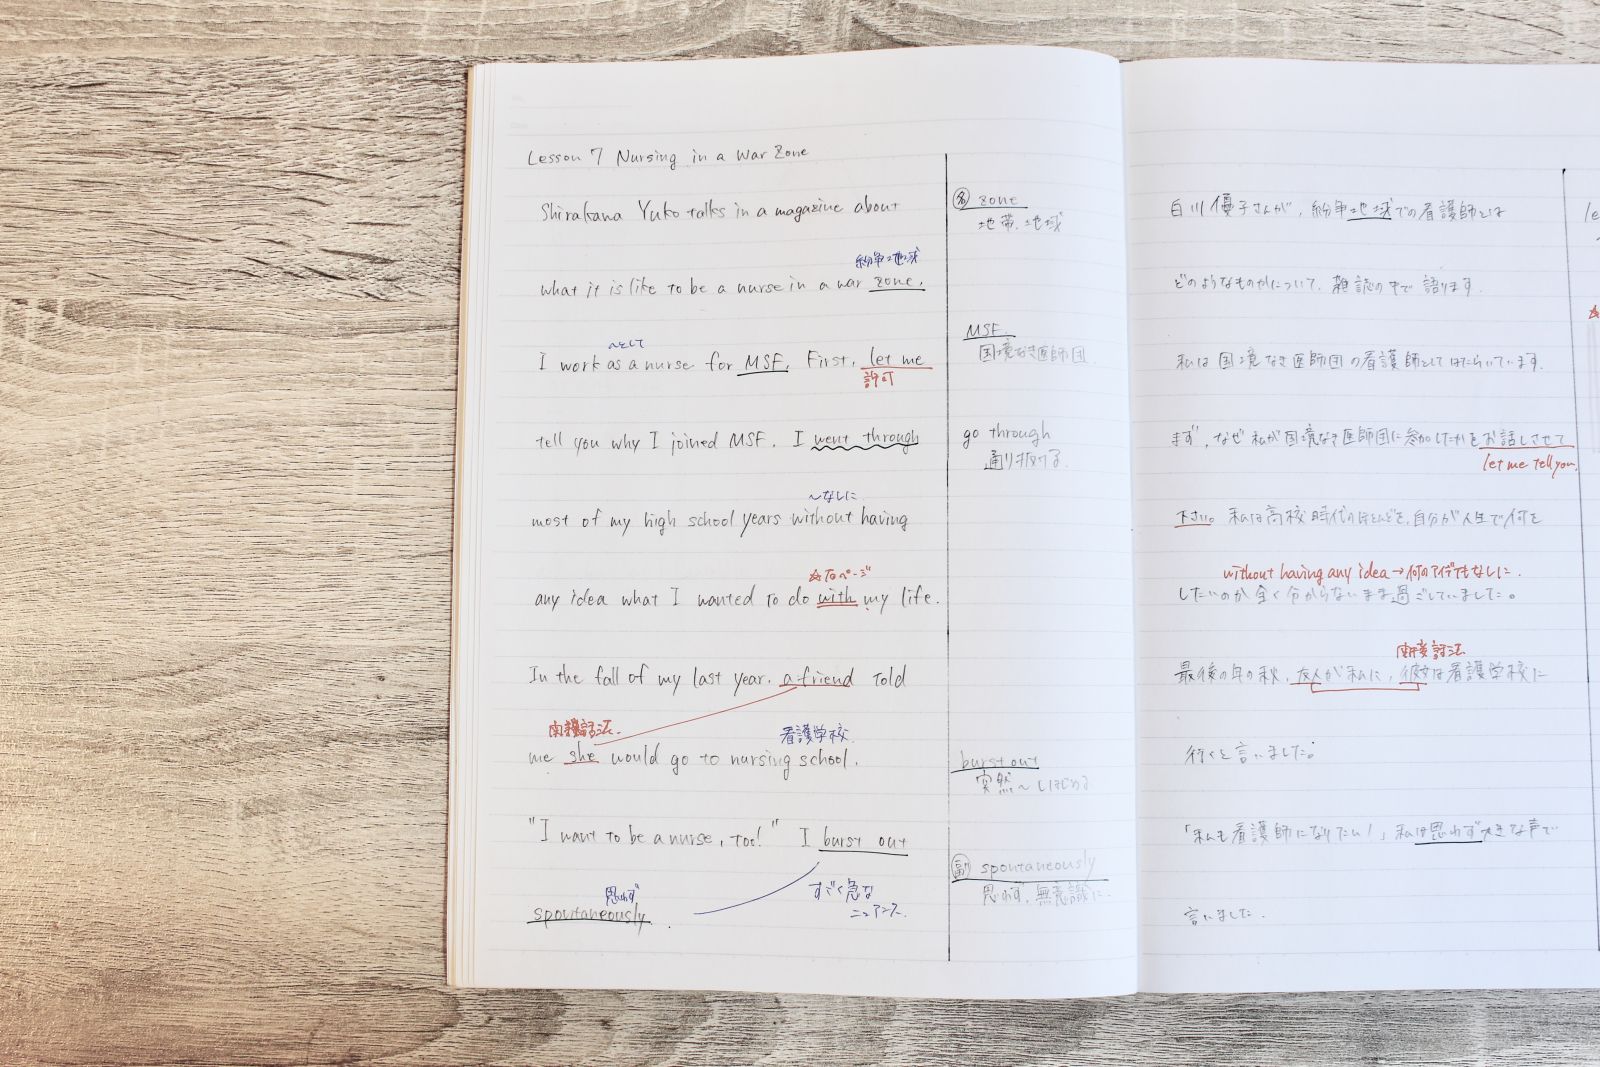 Lesson 7 Nursing in a War Zone
Shirakawa Yuko talks in a magazine about
紛争地域
what it is like to be a nurse in a war zone.
〜として
I work as a nurse for MSF. First, let me
許可
tell you why I joined MSF. I went through
〜なしに
most of my high school years without having
☆右ページ
any idea what I wanted to do with my life.
In the fall of my last year, a friend told
間接話法
看護学校
me she would go to nursing school.
"I want to be a nurse, too!" I burst out
思わず
すごく急な
ニュアンス.
spontaneously.
名 zone
地帯、地域
MSF.
国境なき医師団
go through
通り抜ける.
burst out
突然〜しはじめる
副 spontaneously
思わず、無意識に
白川優子さんが、紛争地域での看護師とは
どのようなものかについて、雑誌の中で語ります.
私は国境なき医師団の看護師としてはたらいています.
まず、なぜ私が国境なき医師団に参加したかをお話しさせて
let me tell you.
下さい。私は高校時代のほとんどを、自分が人生で何を
without having any idea → 何のアイデアもなしに.
したいのか全く分からないまま過ごしていました。
間接話法
最後の年の秋、友人が私に、彼女は看護学校に
行くと言いました。
「私も看護師になりたい!」私は思わず大きな声で
言いました.
le
☆